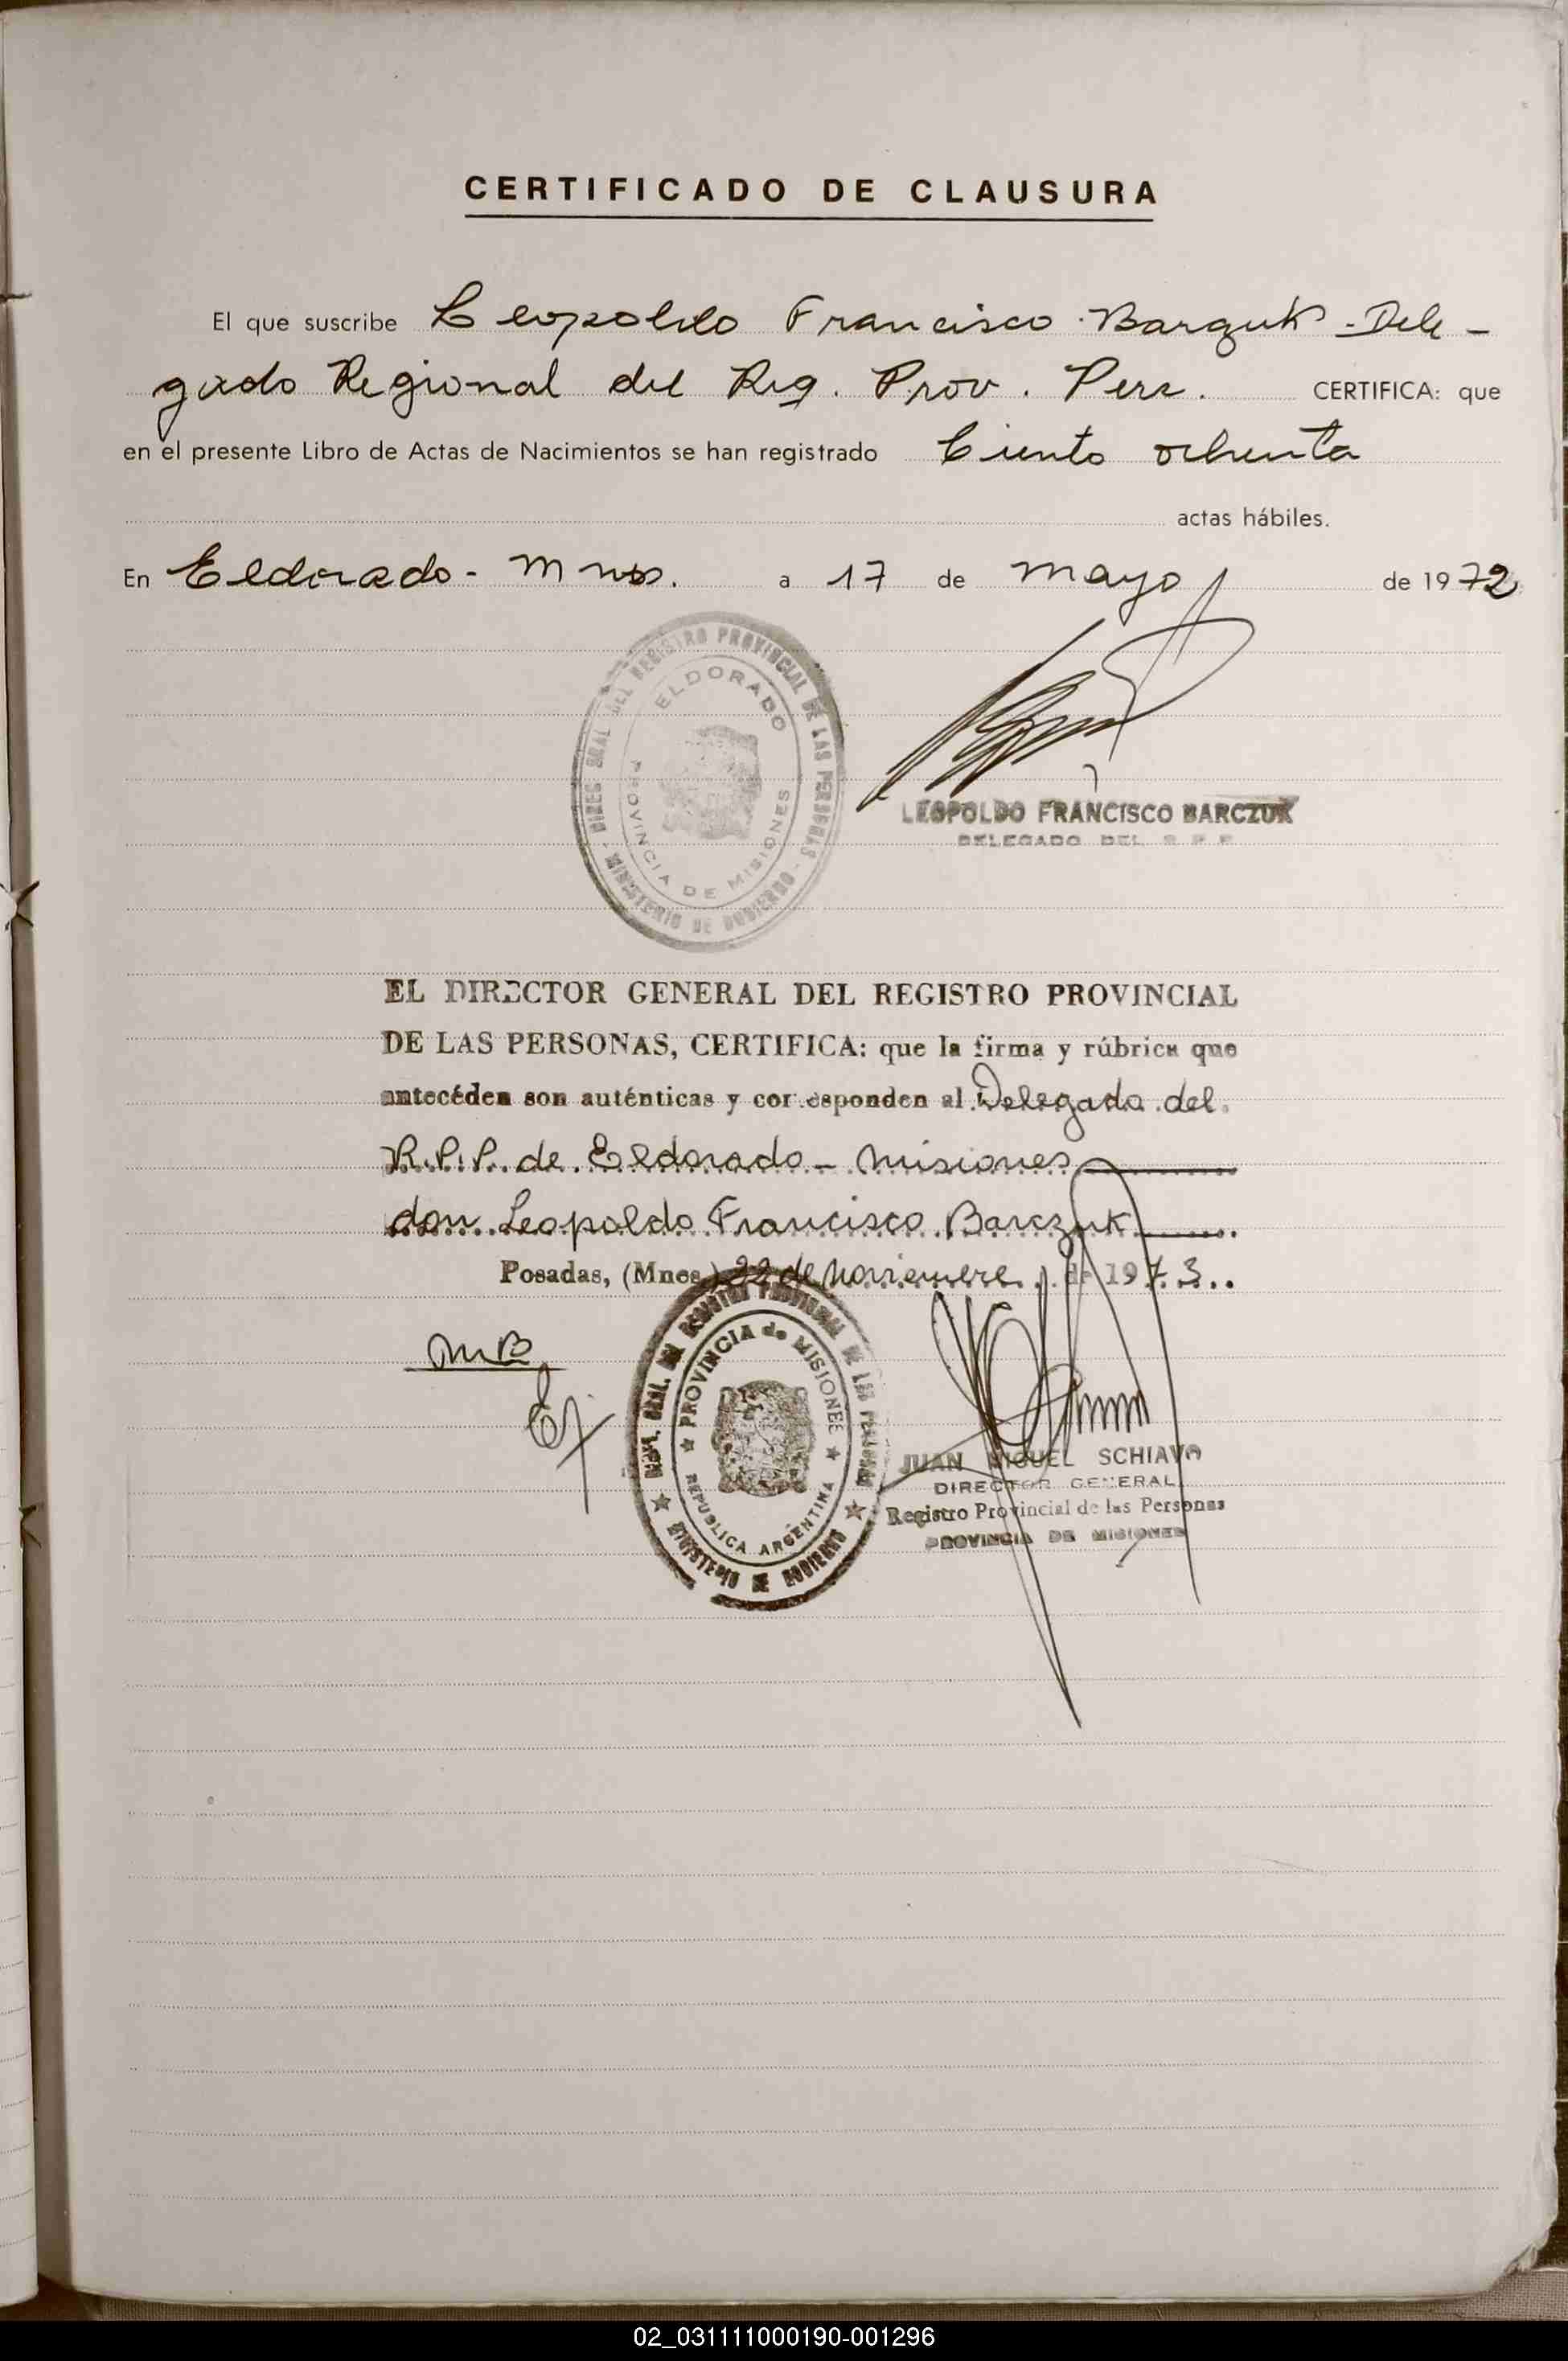 CERTIFICADO DE CLAUSURA
El que suscribe Leopoldo Francisco Barczuk - Dele-
gado Regional del Reg. Prov. Pers. CERTIFICA: que
en el presente Libro de Actas de Nacimientos se han registrado Ciento ochenta
actas hábiles.
En Eldorado - Mnes. a 17 de mayo de 1972
DIREC GRAL DEL REGISTRO PROVINCIAL DE LAS PERSONAS - MINISTERIO DE GOBIERNO -
ELDORADO
PROVINCIA DE MISIONES
LEOPOLDO FRANCISCO BARCZUK
DELEGADO DEL R. P. P.
EL DIRECTOR GENERAL DEL REGISTRO PROVINCIAL
DE LAS PERSONAS, CERTIFICA: que la firma y rúbrica que
antecéden son auténticas y corresponden al Delegado del
R.P.P. de Eldorado - Misiones
don Leopoldo Francisco Barczuk
Posadas, (Mnes.) 22 de Noviembre de 1973
DIREC. GRAL. DEL REGISTRO PROVINCIAL DE LAS PERSONAS ★ MINISTERIO DE GOBIERNO ★
★ PROVINCIA de MISIONES ★
REPUBLICA ARGENTINA
JUAN MIGUEL SCHIAVO
DIRECTOR GENERAL
Registro Provincial de las Personas
PROVINCIA DE MISIONES
02_031111000190-001296